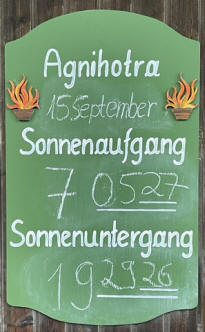 Agnihotra
15 September
Sonnenaufgang
7 0527
Sonnenuntergang
19 2926